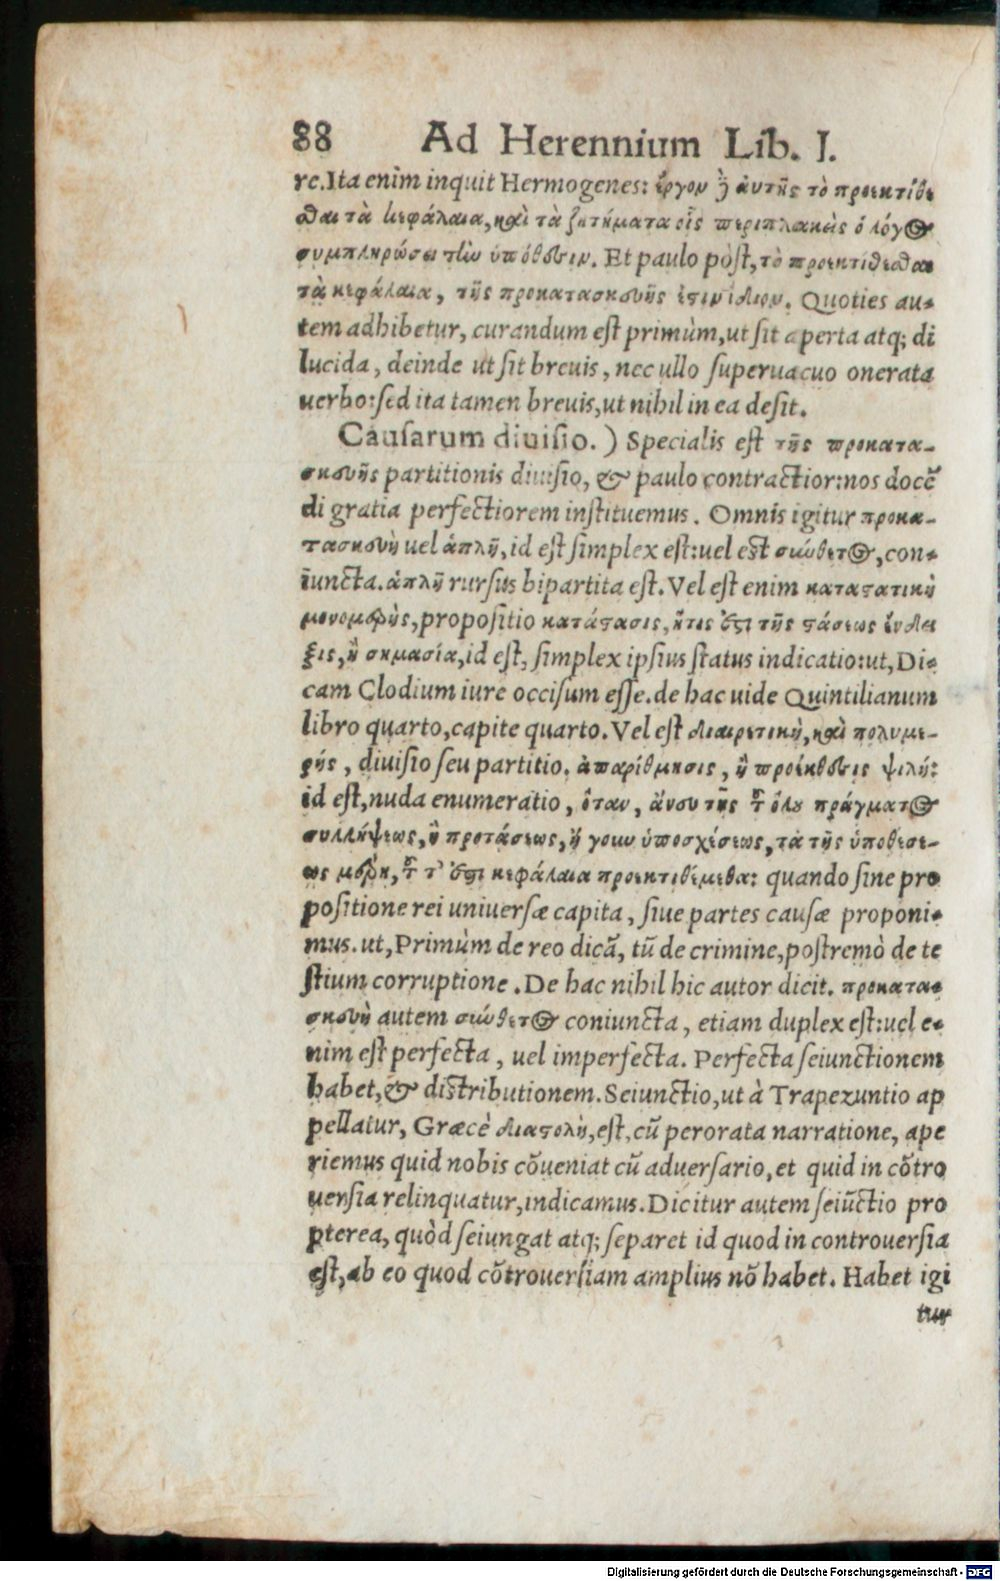 88 Ad Herennium Lib. I.
re. Ita enim inquit Hermogenes: ἔργον ἢ ἀυτῆς τὸ προεκτίθε
σθαι τὰ κεφάλαια, καὶ τὰ ζητήματα οἷς περιπλακεὶς ὁ λόγος
συμπληρώσει τὴν ὑπόθεσιν. Et paulo pòst, τὸ προεκτίθεσθαι
τὰ κεφάλαια, τῆς προκατασκευῆς ἐστιν ἴδιον. Quoties au-
tem adhibetur, curandum est primùm, ut sit aperta atq; di
lucida, deinde ut sit breuis, nec ullo superuacuo onerata
uerbo: sed ita tamen breuis, ut nihil in ea desit.
Causarum diuisio.) Specialis est τῆς προκατα-
σκευῆς partitionis diuisio, & paulo contractior: nos docē
di gratia perfectiorem instituemus. Omnis igitur προκα-
τασκευὴ uel ἁπλῆ, id est simplex est: uel est σύνθετος, con-
iuncta. ἁπλῆ rursus bipartita est. Vel est enim καταστατικὴ
μονομερὴς, propositio κατάστασις, ἥτις ἐστὶ τῆς στάσεως ἔνδει
ξις, ἢ σημασία, id est, simplex ipsius status indicatio: ut, Di-
cam Clodium iure occisum esse. de hac uide Quintilianum
libro quarto, capite quarto. Vel est διαιρετικὴ, καὶ πολυμε-
ρής, diuisio seu partitio. ἀπαρίθμησις, ἢ προέκθεσις ψιλή:
id est, nuda enumeratio, ὅταν, ἄνευ τῆς τοῦ ὅλου πράγματος
συλλήψεως, ἢ προτάσεως, ἢ γουν ὑποσχέσεως, τὰ τῆς ὑποθέσε-
ως μέρη, τοῦτ' ἐστὶ κεφάλαια προεκτιθέμεθα: quando sine pro
positione rei uniuersæ capita, siue partes causæ proponi-
mus. ut, Primùm de reo dicā, tū de crimine, postremò de te
stium corruptione. De hac nihil hic autor dicit. προκατα-
σκευὴ autem σύνθετος coniuncta, etiam duplex est: uel e-
nim est perfecta, uel imperfecta. Perfecta seiunctionem
habet, & distributionem. Seiunctio, ut à Trapezuntio ap
pellatur, Græcè διαστολὴ, est, cū perorata narratione, ape
riemus quid nobis cōueniat cū aduersario, et quid in cōtro
uersia relinquatur, indicamus. Dicitur autem seiūctio pro
pterea, quòd seiungat atq; separet id quod in controuersia
est, ab eo quod cōtrouersiam amplius nō habet. Habet igi
tur
Digitalisierung gefördert durch die Deutsche Forschungsgemeinschaft - DFG